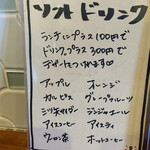 ソフトドリンク
ランチにプラス100円で
ドリンクプラス300円で
デザートにつけれます♡
アップル オレンジ
カルピス グレープフルーツ
三ツ矢サイダー ジンジャーエール
アイスコーヒー アイスティ
ウーロン茶 ホットコーヒー